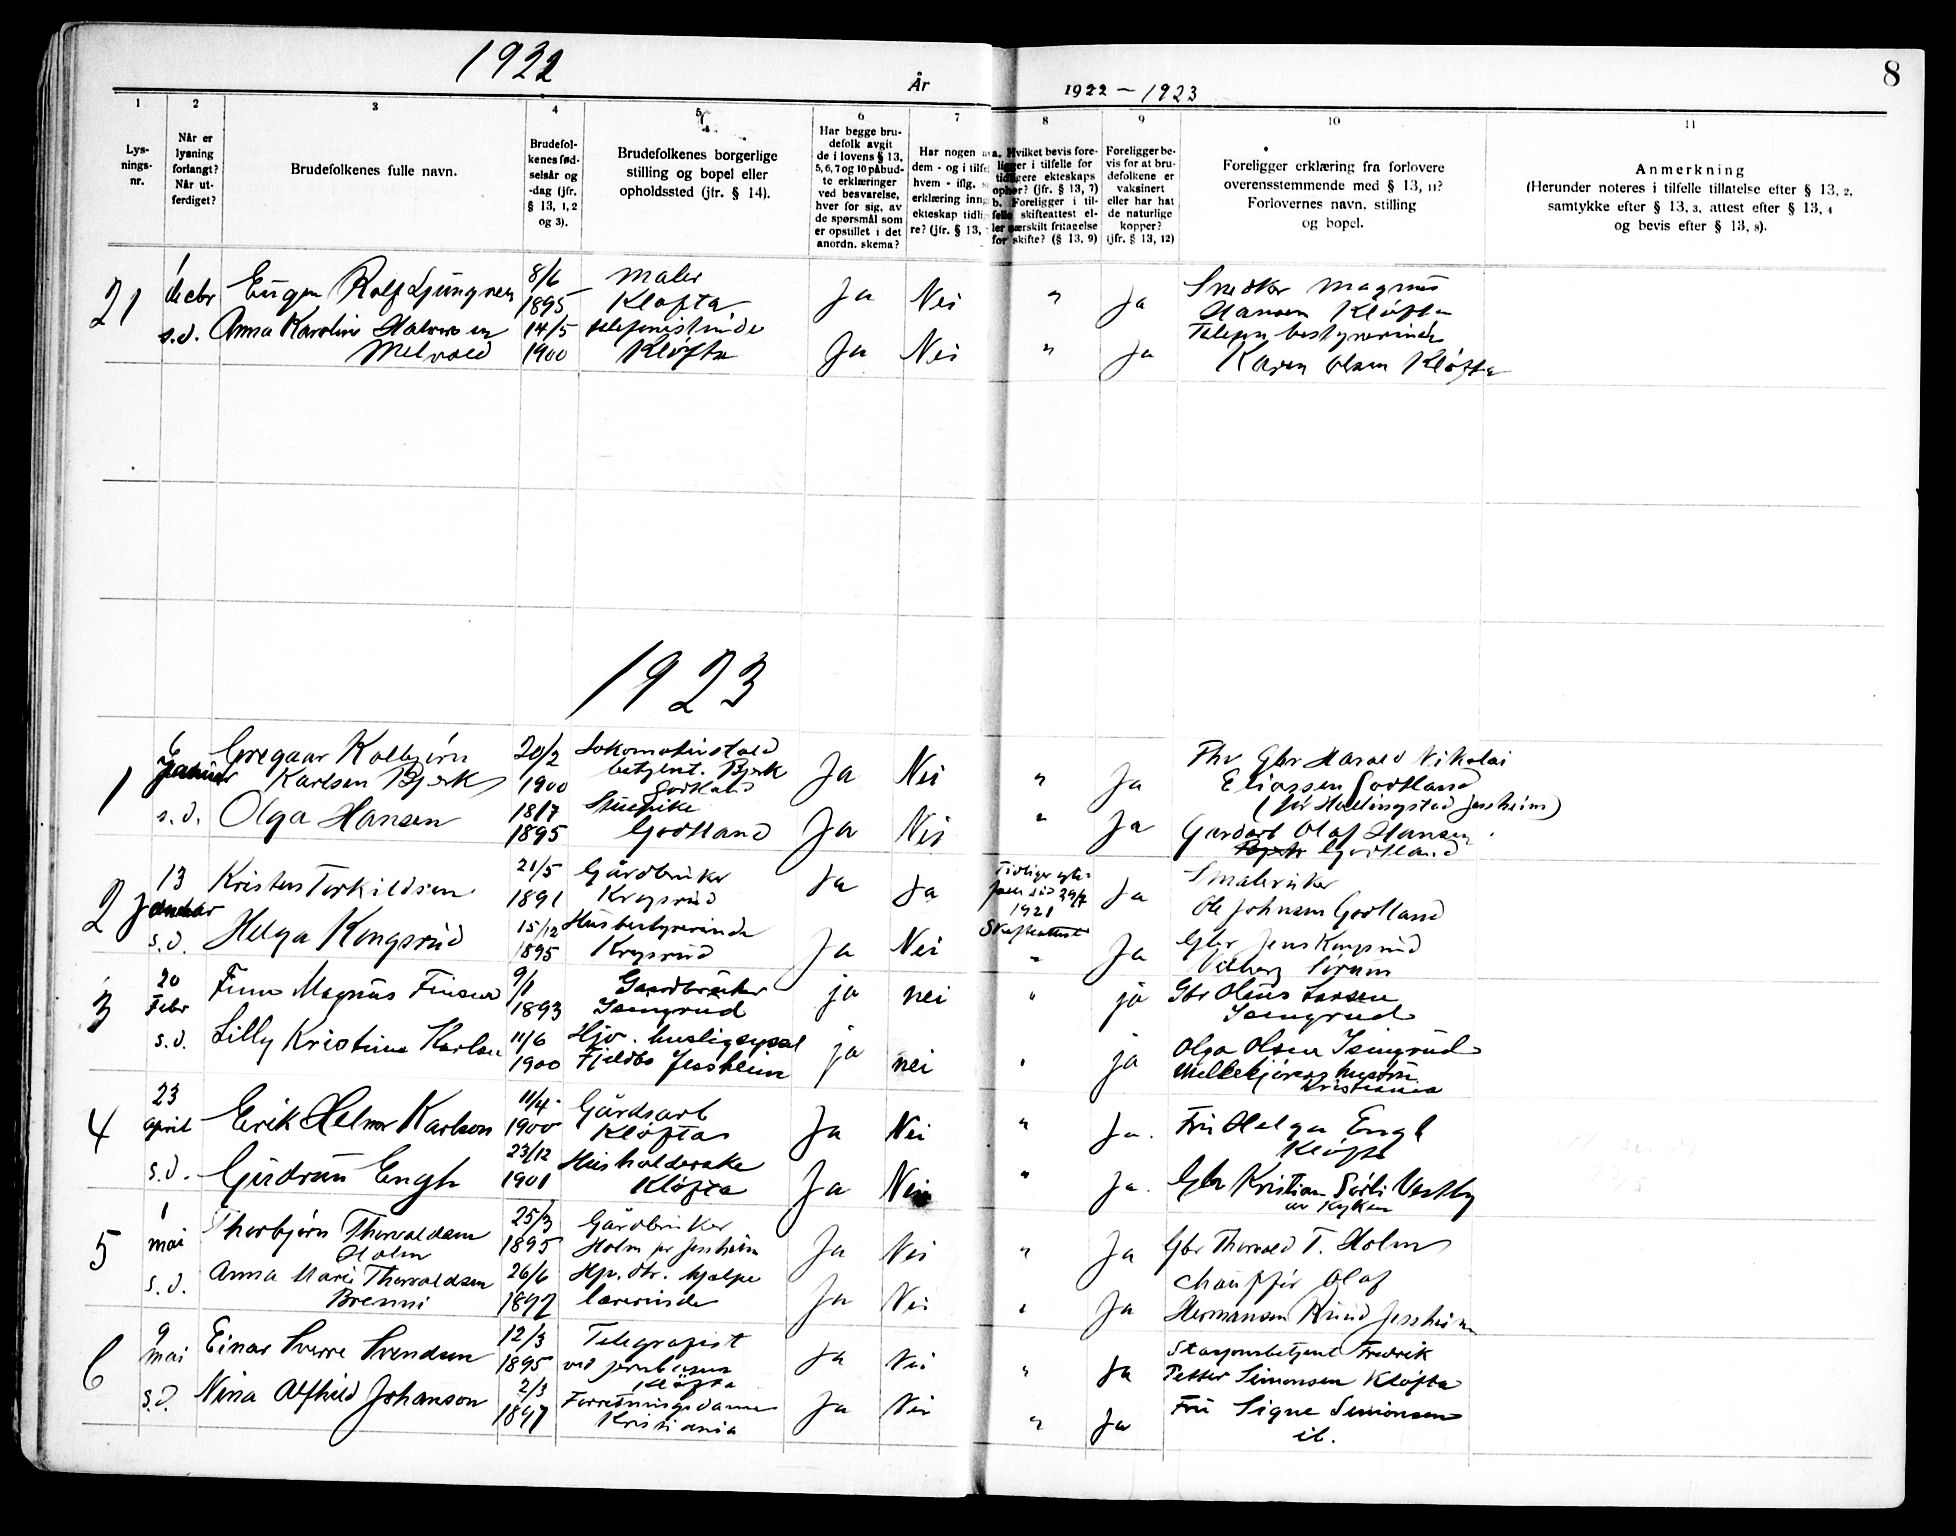 1922
År
1922 — 1923
8
1
2
3
4
5
6
7
8
9
10
11
Lys-
nings-
nr.
Når er
lysning
forlangt?
Når ut-
ferdiget?
Brudefolkenes fulle navn.
Brudefol-
kenes fød-
selsår og
-dag (jfr.
§ 13, 1, 2
og 3).
Brudefolkenes borgerlige
stilling og bopel eller
opholdssted (jfr. § 14).
Har begge bru-
defolk avgit
de i lovens § 13,
5, 6, 7 og 10 påbud-
te erklæringer
ved besvarelse,
hver for sig, av
de spørsmål som
er opstillet i det
anordn. skema?
Har nogen
dem - og i tilfel
hvem - iflg.
erklæring inng
ekteskap tidli
re? (jfr. § 13,
a. Hvilket bevis fore-
ligger i tilfelle for
tidligere ekteskaps
ophør? (jfr. § 13, 7)
b. Foreligger i til-
felle skifteattest el-
ler særskilt fritagelse
for skifte? (§ 13, 9)
Foreligger be-
vis for at bru-
defolkene er
vaksinert
eller har hat
de naturlige
kopper?
(jfr. § 13, 12)
Foreligger erklæring fra forlovere
overensstemmende med § 13, 11?
Forlovernes navn, stilling
og bopel.
Anmerkning
(Herunder noteres i tilfelle tillatelse efter § 13, 2,
samtykke efter § 13, 3, attest efter § 13, 4
og bevis efter § 13, 8).
21
1
decbr
s.d.
Eugen Rolf Ljungren
Anna Karoline Halvorsen
Melvold
8/6
1895
14/5
1900
Maler
Kløfta
telefonistinde
Kløfta
Ja Nei " Ja
Ja Nei " Ja
Snedker Magnus
Hansen Kløfta
Telefonbestyrerinde
Karen Olsen Kløfta
1923
1
6
Januar
s.d.
Gregaar Kolbjørn
Karlsen Bjerk
Olga Hansen
20/2
1900
18/7
1895
Lokomotivstald
betjent. Bjerk
Godtland
Stuepike
Godtland
Ja Nei " Ja
Ja Nei " Ja
Fhv Gbr Harald Nikolai
Eliassen Godtland
Gardarb Olaf Hansen
Godtland
2
13
Januar
s.d.
Kristen Torkildsen
Helga Kongsrud
21/5
1891
15/12
1895
Gårdbruker
Husbestyrerinde
Ja Ja
Ja Nei
1921
Skifteattest
"
Ja
Ja
Småbruker
Ole Johnsen Godtland
Gbr Jens Kongsrud
Sørum
3
20
Febr
s.d.
Finn Magnus
Lilly Kristine Karlsen
9/1
1893
11/6
1900
Gaardbruker
Isingrud
Fjeldbo Jessheim
ja nei " ja
ja nei " ja
Gbr Olaus Larsen
Isingrud
Olga Olsen Isingrud
Kristiania
4
23
april
s.d.
Erik Helmer Karlson
Gudrun Engh
11/4
1900
23/12
1901
Gårdsarb
Kløfta
Husholderske
Kløfta
Ja Nei " Ja.
Ja Nei " Ja.
Fru Helga Engh
Kløfta
Gbr Kristian Sørli Vestby
5
1
mai
s.d.
Thorbjørn Thorvaldsen
Holm
Anna Marie Thorvaldsen
Brenni
25/3
1895
26/6
1897
Gårdbruker
Holm pr Jessheim
Hjv. dtr. hjelpe
lærerinde
Ja Nei " Ja
Ja Nei " Ja
Gbr Thorvald T. Holm
Chauffør Olaf
Hermansen Rund Jessheim
6
9
mai
s.d.
Einar Sverre Svendsen
Nina Alfhild Johanson
12/3
1895
2/3
1897
Telegrafist
ved jernbanen
Kløfta
Forretningsdame
Kristiania
Ja Nei " Ja
Ja Nei " Ja
Stasjonsbetjent Fredrik
Petter Simonsen Kløfta
Fru Signe Simonsen
ib.